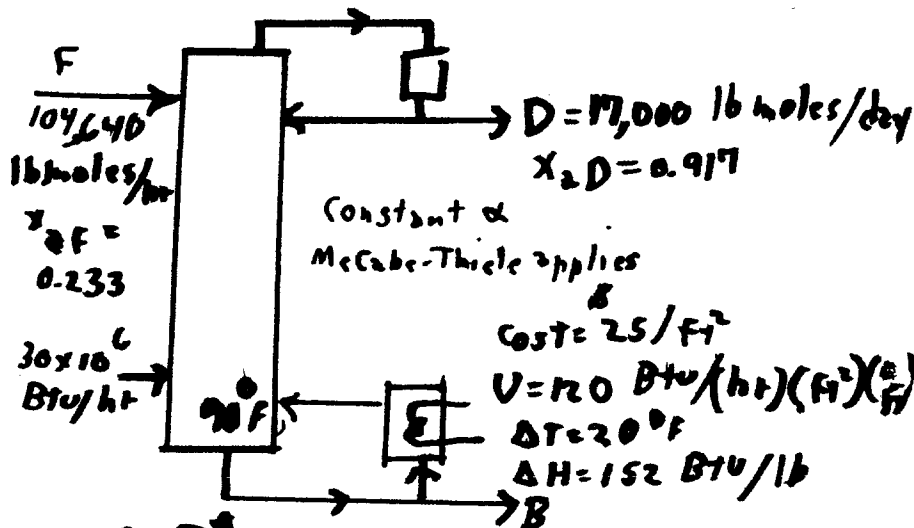 F
104,640
lb moles/hr
x_aF =
0.233
30x10^6
Btu/hr
90°F
D = 17,000 lb moles/day
x_aD = 0.917
Constant α
McCabe-Thiele applies
Cost = $25/ft²
U=120 Btu/(hr)(ft²)(°F)
ΔT=20°F
ΔH=152 Btu/lb
B